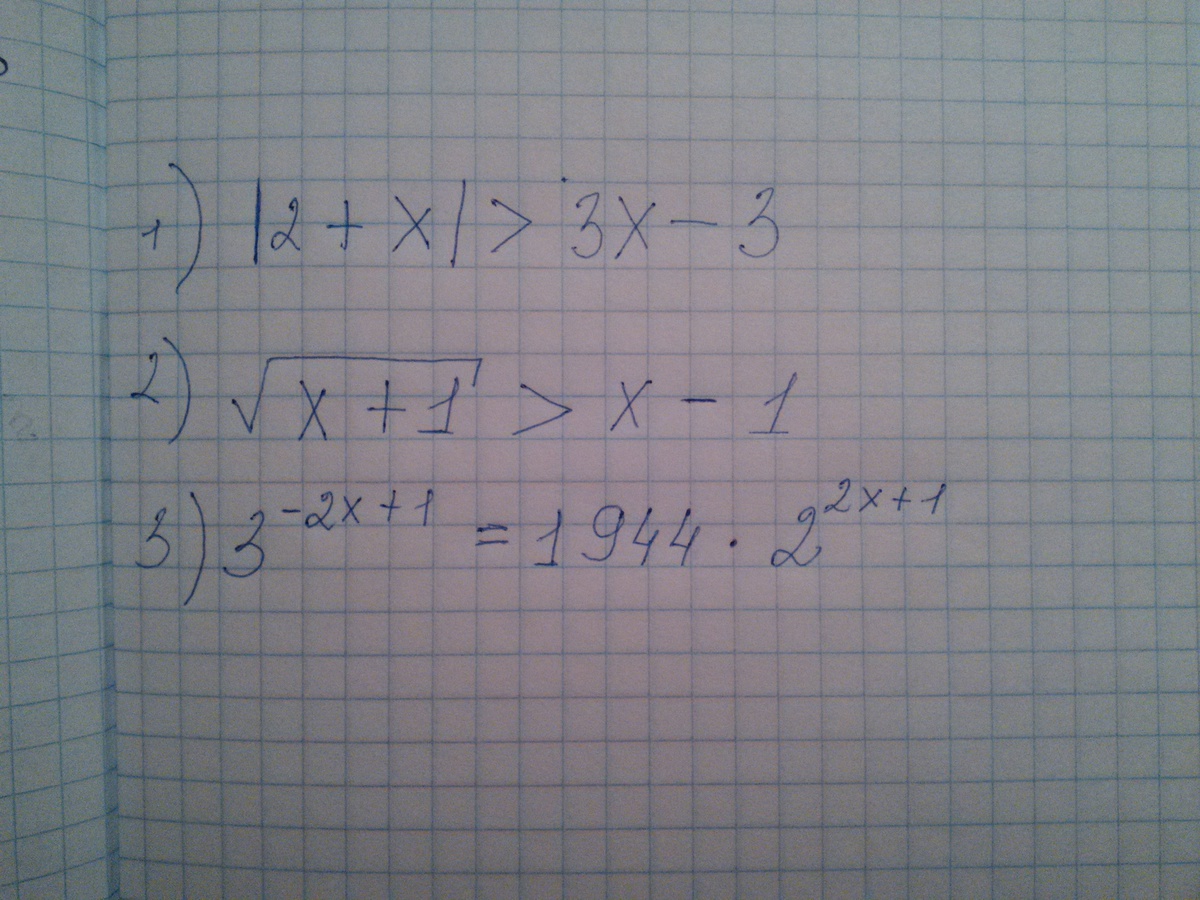 1) |2 + x| > 3x - 3
2) √(x + 1) > x - 1
3) 3^(-2x+1) = 1944 · 2^(2x+1)